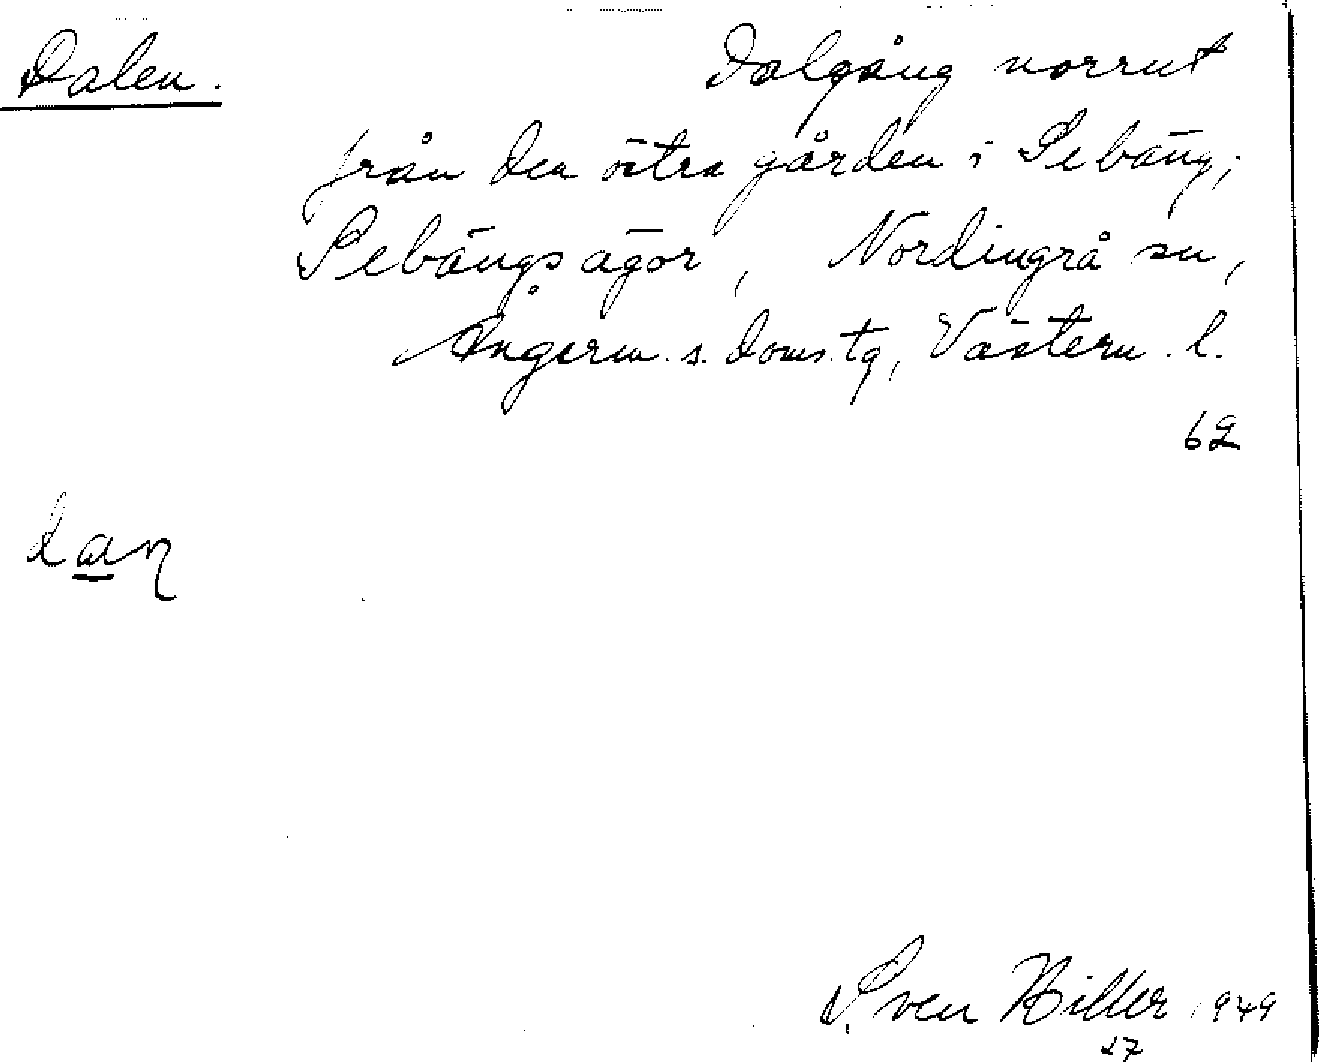 Dalen.
Dalgång norrut
från den östra gården i Sebäng;
Sebängs ägor, Nordingrå sn,
Ångerm. s. doms. tg, Västern. l.
62
Sven Hiller 1949
27